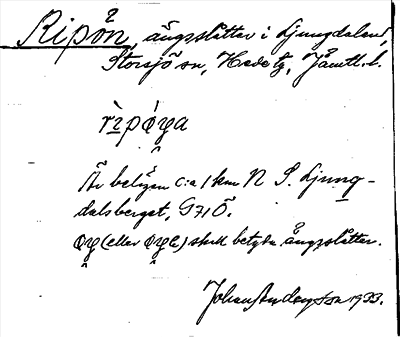 Ripön, ängsslåtter i Ljungdalen,
Storsjö sn, Hede tg, Jämtl. l.
rìpǿya
Är belägen c:a 1 km N S. Ljung-
dalsberget, G71Ö.
øy (eller øye) skall betyda ängsslåtter.
Johan Anderson 1933.